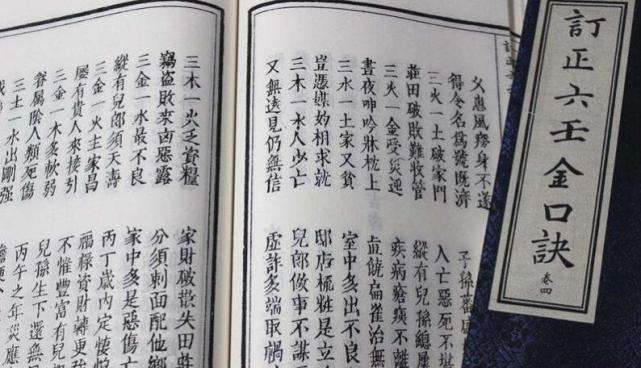 訂正六壬金口訣
卷四
父患風癆身不遂
得令名為號既濟 子孫
三火一土破家門 人亡惡死不堪
莊田破敗難收管 縱有兒孫總屬
三火一金受災迍 疾病瘡痍不離
晝夜呻吟牀枕上 直饒扁雀治無
三水一土家又貧 室中多出不良
豈憑媒妁相求就 邸店梳粧是立
三木一水人少亡 兒郎做事不謀
又無遠見仍無信 虛詐多端取禍
三木一火乏資糧 家財破散失田
竊盜敗來惡露 分須刺面配他鄉
三金一水最不良 家中多是惡傷亡
縱有兒郎須夭壽 丙丁歲內定悽
三金一火主家昌 福祿資財轉更
屢有貴人來接引 不惟豐富有兒
三金一木多軟弱 兒孫生下還無
眷屬陰人頻死傷 丙午之年災應
三土一水出剛强